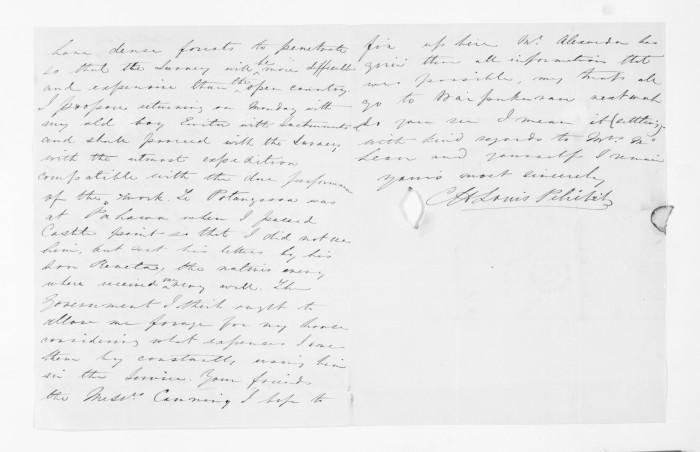 have dense forests to penetrate
so that the Survey will be more difficult
and expensive than the open country.
I propose returning on Monday with
my old boy with Instruments
and shall proceed with the Survey
with the utmost expedition
compatible with the due performance
of the work. Te Potangaroa was
at Pahawa when I passed
Castle point so that I did not see
him, but sent his letters by his
son the natives every
where received me very well. The
Government I think ought to
allow me forage for my horse
considering what expenses I save
them by constantly using him
in the Service. Your friends
the Messrs Canning I hope to
fix up here Mr. Alexander has
given them all information that
was possible, my thats all
go to next week
so you see I mean it (settling
with kind regards to Mrs Mc
Lean and yourself I remain
yours most sincerely
Louis Pelichet